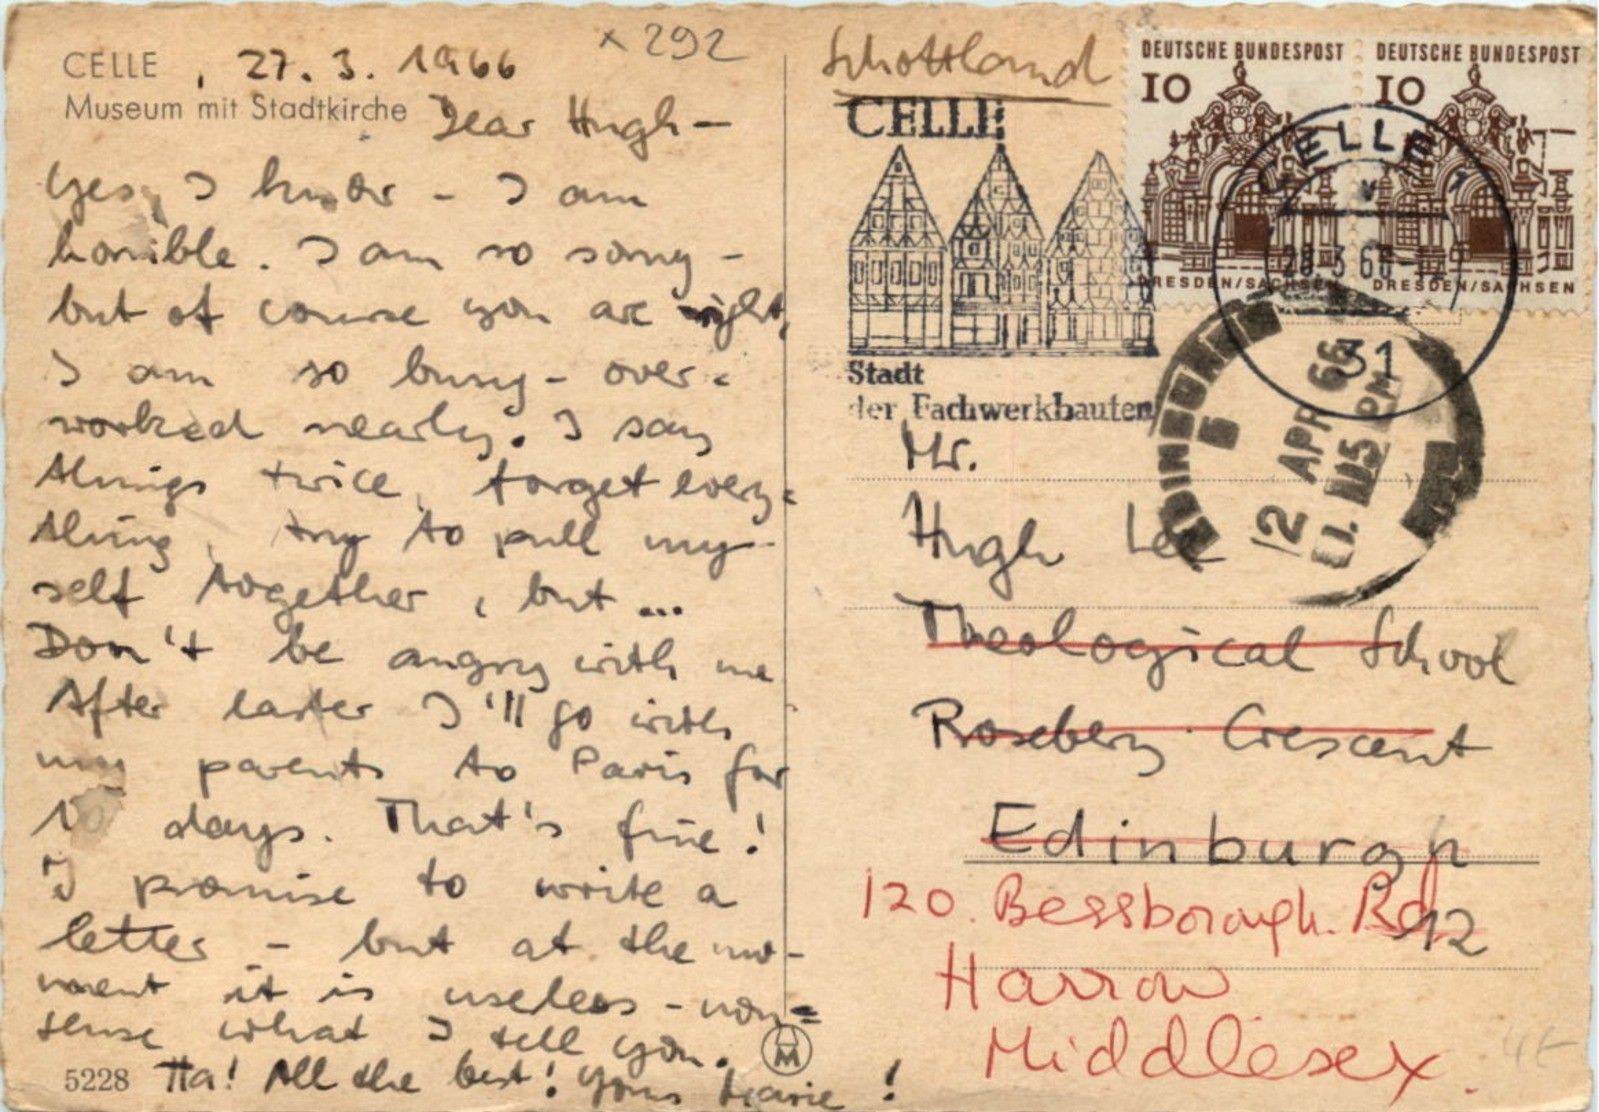 CELLE, 27. 3. 1966
× 292
Museum mit Stadtkirche
Dear Hugh –
Yes, I know – I am
horrible. I am so sorry –
but of course you are right,
I am so busy – over=
worked nearly. I say
things twice, forget every=
thing, try to pull my-
self together, but ...
Don't be angry with me
After easter I'll go with
my parents to Paris for
10 days. That's fine!
I promise to write a
letter – but at the mo-
ment it is useless – non=
sense what I tell you.
5228 Ha! All the best! Yours Marie!
M
Schottland
CELLE
Stadt
der Fachwerkbauten
DEUTSCHE BUNDESPOST
10
DRESDEN/SACHSEN
DEUTSCHE BUNDESPOST
10
DRESDEN/SACHSEN
CELLE 1
28.3.66-12
31
EDINBURGH
6
12 APR 66
1.15 PM
Mr.
Hugh Lee
Theological School
Rosebery Crescent
Edinburgh
12
120. Bessborough. Rd
Harrow
Middlesex.
4E